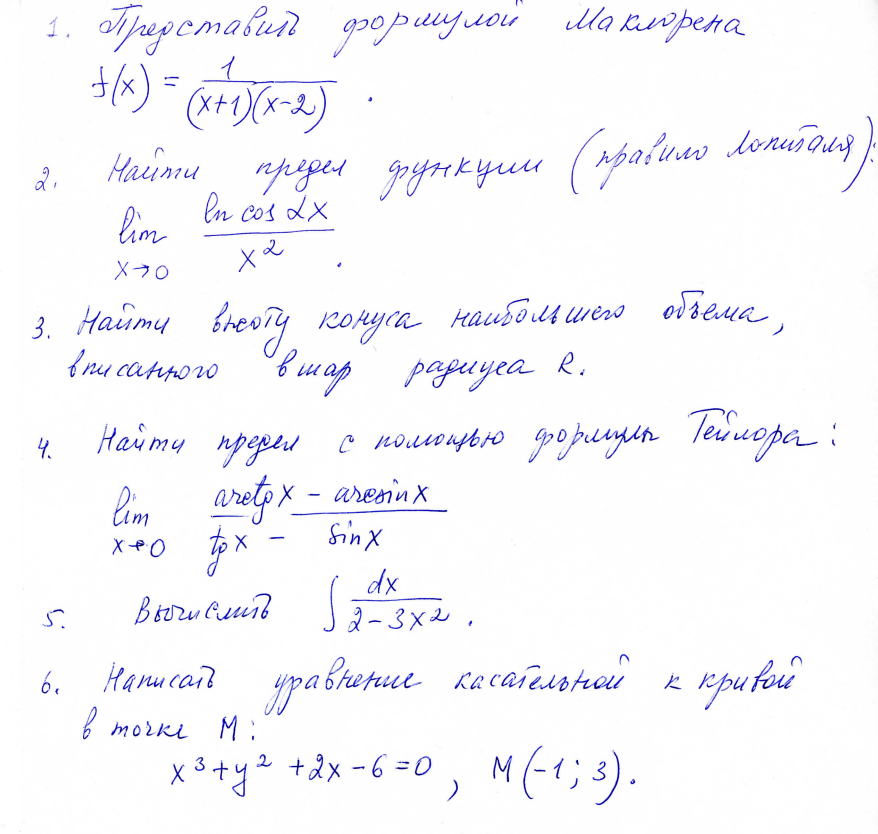 1. Представить формулой Маклорена
f(x) = 1/((x+1)(x-2)).
2. Найти предел функции (правило Лопиталя):
lim x→0 (ln cos αx)/(x²).
3. Найти высоту конуса наибольшего объема,
вписанного в шар радиуса R.
4. Найти предел с помощью формулы Тейлора:
lim x→0 (arctg x - arcsin x)/(tg x - sin x)
5. Вычислить ∫ dx/(2-3x²).
6. Написать уравнение касательной к кривой
в точке М:
x³+y²+2x-6=0, M(-1; 3).